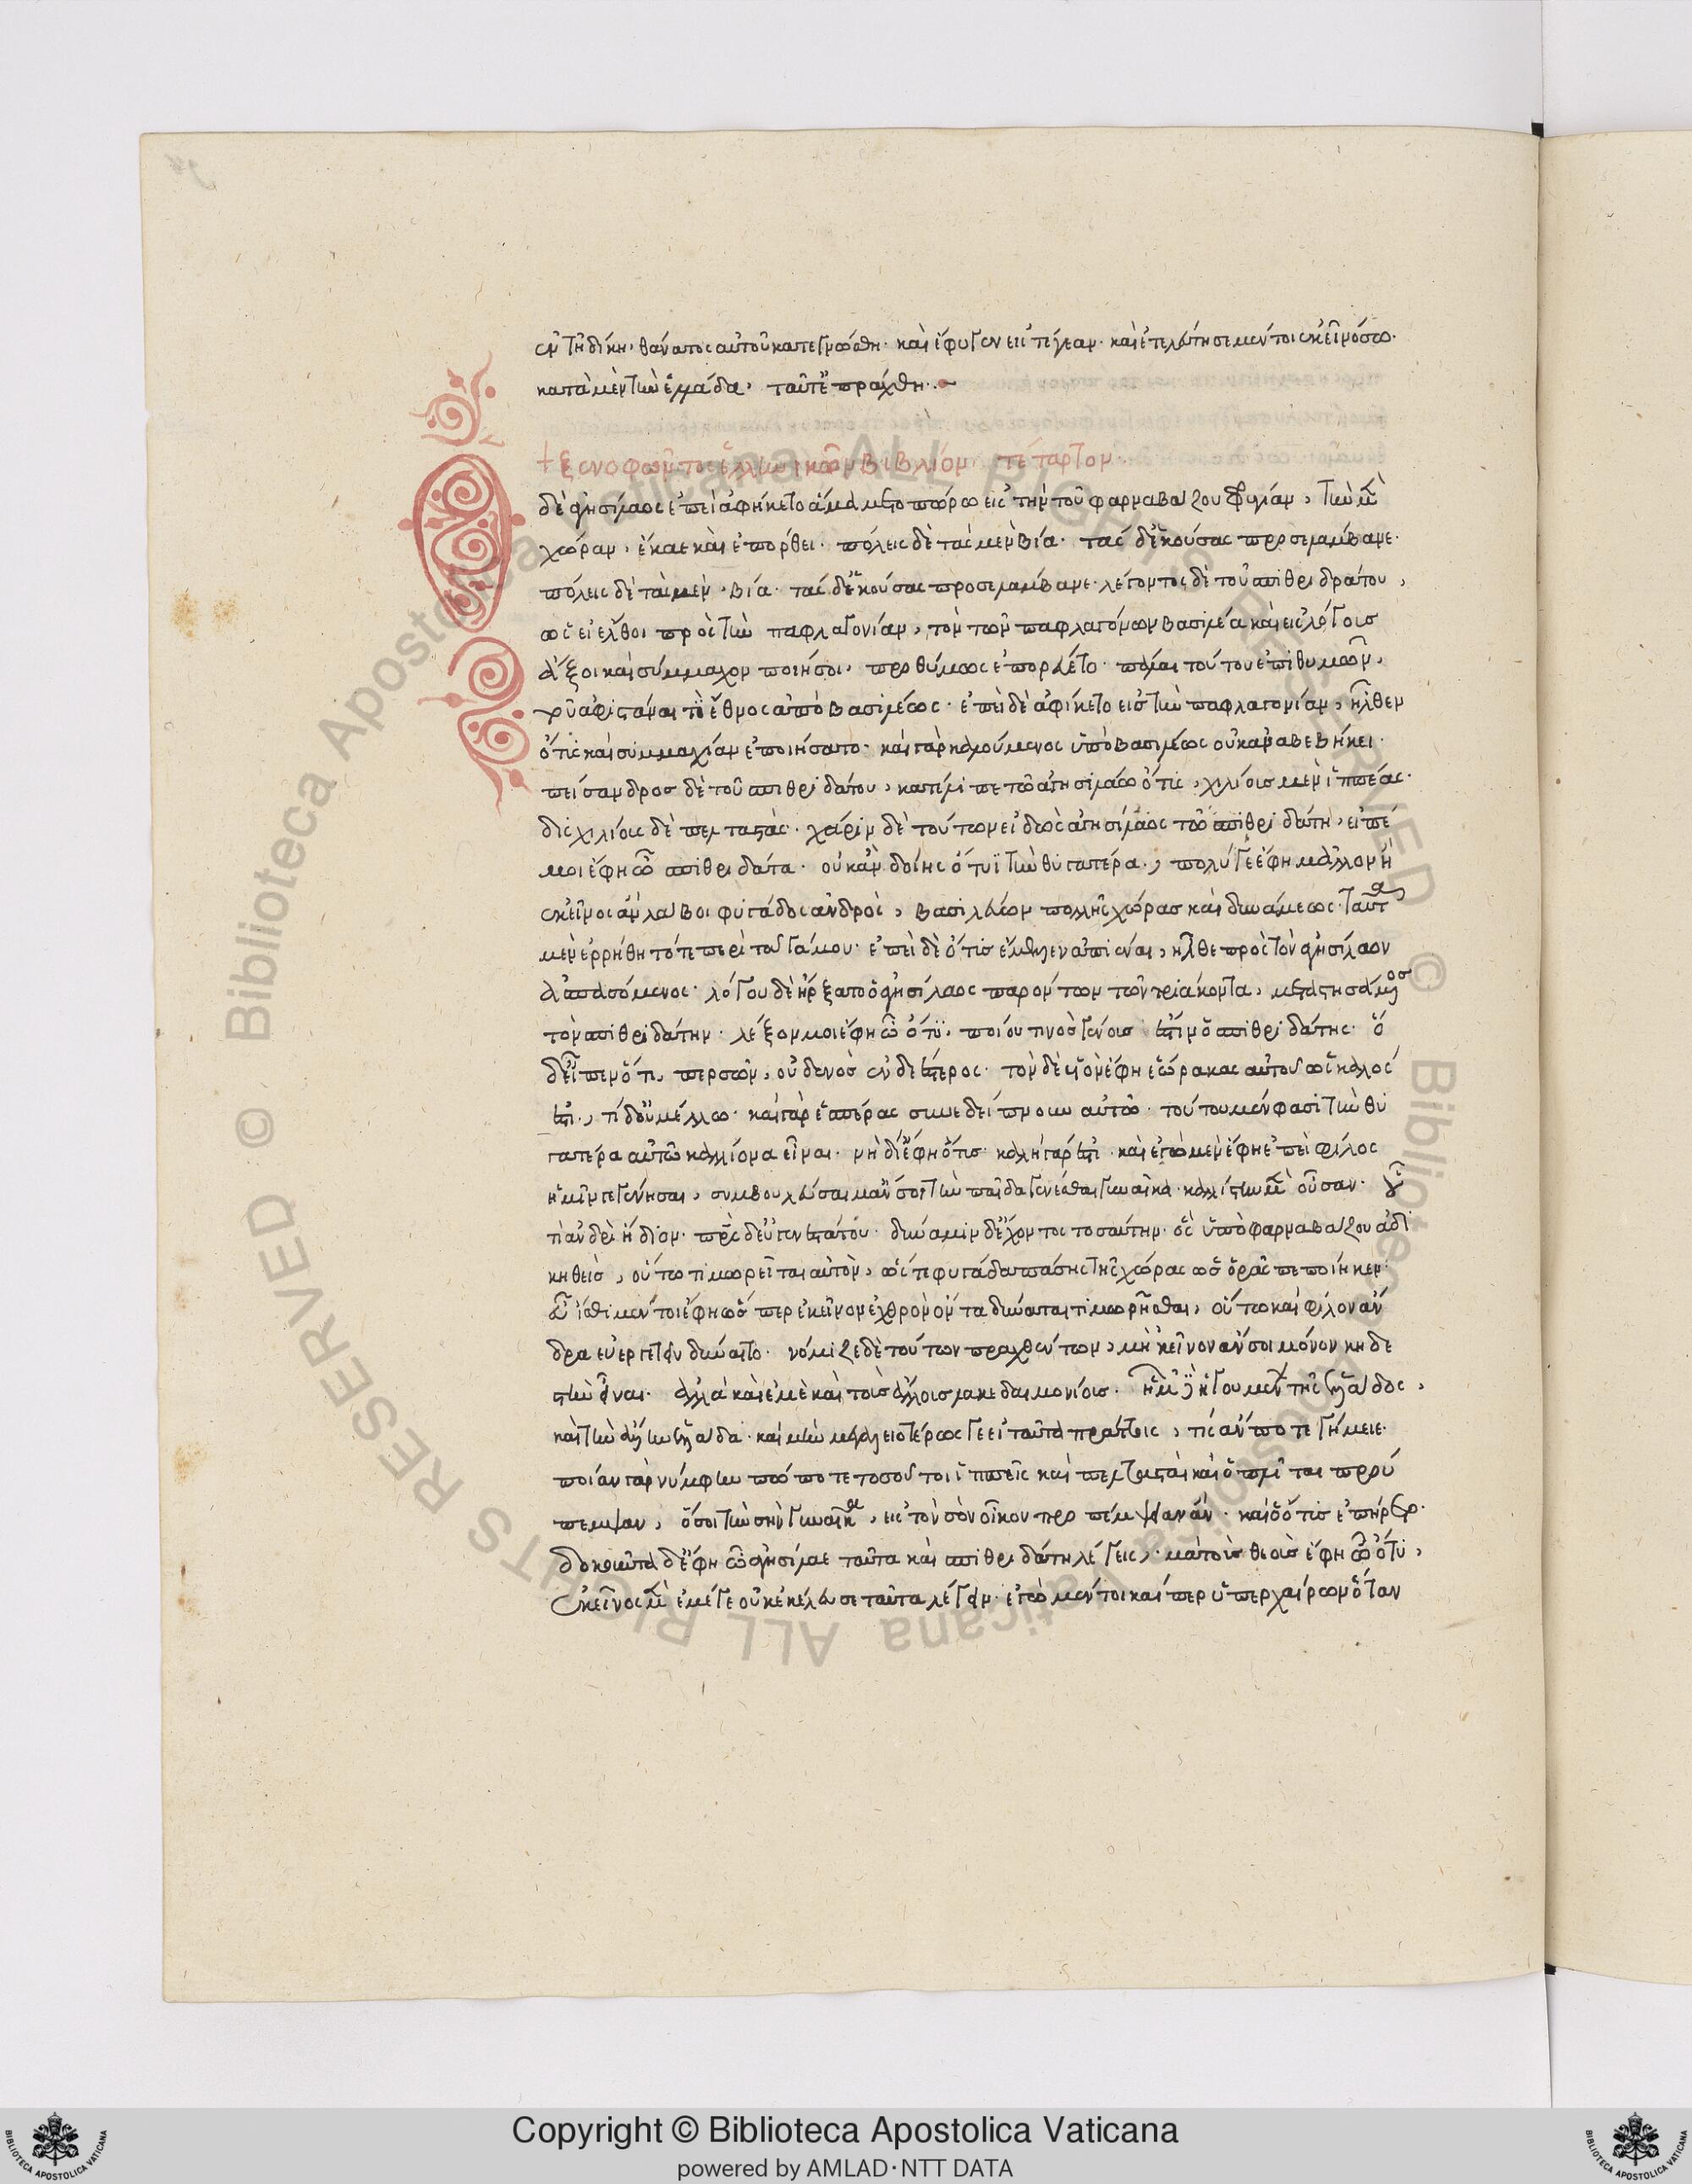 ἐν τῇ δίκῃ, θάνατος αὐτοῦ κατεγνώσθη· καὶ ἔφυγεν εἰς τεγέαν· καὶ ἐτελεύτησε μέντοι ἐκεῖ νόσω.
κατὰ μὲν τὴν ἑλλάδα, ταῦτ' ἐπράχθη.
+ ξενοφῶντος ἑλληνικῶν βιβλίον τέταρτον
δὲ ἀγησίλαος ἐπεὶ ἀφίκετο ἅμα μετοπώρω εἰς τὴν τοῦ φαρναβάζου φρυγίαν, τὴν μὲν
χώραν, ἔκαε καὶ ἐπόρθει· πόλεις δὲ τὰς μὲν βία· τὰς δ' ἑκούσας προσελάμβανε·
πόλεις δὲ τὰς μὲν βία· τὰς δ' ἑκούσας προσελάμβανε· λέγοντος δὲ τοῦ σπιθριδάτου,
ὡς εἰ ἔλθοι πρὸς τὴν παφλαγονίαν, τὸν τῶν παφλαγόνων βασιλέα καὶ εἰς λόγους
ἄξοι καὶ σύμμαχον ποιήσοι, προθύμως ἐπορεύετο· πάλαι τούτου ἐπιθυμῶν,
τοῦ ἀφιστάναι τὸ ἔθνος ἀπὸ βασιλέως· ἐπεὶ δὲ ἀφίκετο εἰς τὴν παφλαγονίαν, ἦλθεν
ὄτυς καὶ συμμαχίαν ἐποιήσατο· καὶ γὰρ καλούμενος ὑπὸ βασιλέως οὐκ ἀναβεβήκει·
πείσανδρος δὲ τοῦ σπιθριδάτου, κατέλιπε τῶ ἀγησιλάω ὄτις, χιλίους μὲν ἱππέας·
δισχιλίους δὲ πελταστάς· χάριν δὲ τούτων εἰδὼς ἀγησίλαος τῶ σπιθριδάτη, εἰπέ
μοι ἔφη ὦ σπιθριδάτα· οὐκ ἂν δοίης ὄτυϊ τὴν θυγατέρα·, πολύ γε ἔφη μᾶλλον ἢ
ἐκεῖνος ἂν λάβοι φυγάδος ἀνδρὸς, βασιλεύων πολλῆς χώρας καὶ δυνάμεως· ταῦτα
μὲν ἐρρήθη τότε περὶ τοῦ γάμου· ἐπεὶ δὲ ὄτις ἔμελλεν ἀπιέναι, ἦλθε πρὸς τὸν ἀγησίλαον
ἀσπασόμενος· λόγου δὲ ἤρξατο ὁ ἀγησίλαος παρόντων τῶν τριάκοντα, μεταστησάμενος
τὸν σπιθριδάτην· λέξον μοι ἔφη ὦ ὄτυ, ποίου τινὸς γένους ἐστὶν ὁ σπιθριδάτης· ὁ
δ' εἶπεν ὅτι, περσῶν, οὐδενὸς ἐνδεέστερος· τὸν δὲ υἱὸν ἔφη ἑώρακας αὐτοῦ ὡς καλός
ἐστι·, τί δ' οὐ μέλλω· καὶ γὰρ ἑσπέρας συνεδείπνουν αὐτῶ· τούτου μέν φασὶ τὴν θυ
γατέρα αὐτῶ καλλίονα εἶναι· νὴ δί' ἔφη ὄτις· καλὴ γάρ ἐστι· καὶ ἐγὼ μὲν ἔφη ἐπεὶ φίλος
ἡμῖν γεγένησαι, συμβουλεύσαιμ' ἄν σοι τὴν παῖδα γενέσθαι γυναῖκα· καλλίστην μὲν οὖσαν· οὗ
τί ἀνδρὶ ἥδιον· πρὸς δ' εὐγενεστάτου· δύναμιν δ' ἔχοντος τοσαύτην· ὃς ὑπὸ φαρναβάζου ἀδι
κηθεὶς, οὕτω τιμωρεῖται αὐτὸν, ὥστε φυγάδα πάσης τῆς χώρας ὡς ὁρᾷς πεποίηκεν·
εὖ ἴσθι μέντοι ἔφη ὥσπερ ἐκεῖνον ἐχθρὸν ὄντα δύναται τιμωρεῖσθαι, οὕτω καὶ φίλον ἄν
δρα εὐεργετεῖν δύναιτο· νόμιζε δὲ τούτων πραχθέντων, μὴ ἐκεῖνον ἄν σοι μόνον κηδε
στὴν εἶναι· ἀλλὰ καὶ ἐμὲ καὶ τοὺς ἄλλους λακεδαιμονίους· ἡμῶν δὲ ἡγουμένων τῆς ἑλλάδος,
καὶ τὴν ἄλλην ἑλλάδα· καὶ μὴν μεγαλειοτέρως γε εἰ ταῦτα πράττοις, τίς ἄν ποτε γήμειε·
ποίαν γὰρ νύμφην πώποτε τοσοῦτοι ἱππεῖς καὶ πελτασταὶ καὶ ὁπλῖται πρού
πεμψαν, ὅσοι τὴν σὴν γυναῖκα, εἰς τὸν σὸν οἶκον προπέμψαιεν ἄν· καὶ ὁ ὄτις ἐπήρετο·
δοκοῦντα δ' ἔφη ὦ ἀγησίλαε ταῦτα καὶ σπιθριδάτη λέγεις,· μὰ τοὺς θεοὺς ἔφη ὦ ὄτυ,
ἐκεῖνος μὲν ἐμέ γε οὐκ ἐκέλευσε ταῦτα λέγειν· ἐγὼ μέντοι καίπερ ὑπερχαίρων ὅταν